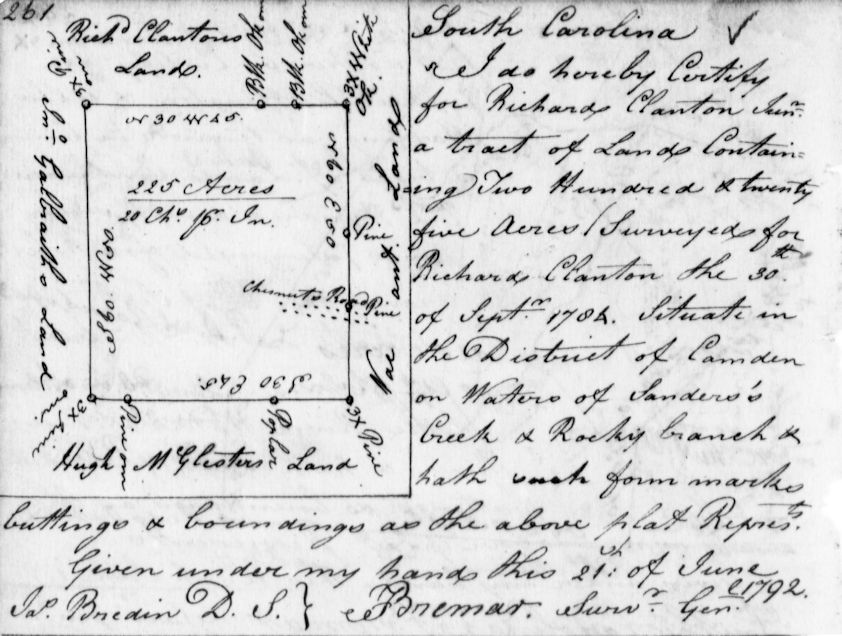 261
Rich^d Clantons
Land.
Blk. Ok
Blk. Ok
3X White
Ok.
3X Pine
N 30 W 45.
225 Acres
20 Ch^s p^r In.
N 60 E 50
Vacant Land
Pine
Chesnuts Road
Pine
Jn^o Galbraiths Land
S 60 W 50.
S 30 E 45.
3X
Pine
Poplar
3X Pine
Hugh M^cGlesters Land
South Carolina
I do hereby Certify
for Richard Clanton Jun^r.
a tract of Land Contain-
ing Two Hundred & twenty
five Acres (Surveyed for
Richard Clanton the 30.^th
of Sept^r. 1784. Situate in
the District of Camden
on Waters of Sanders's
Creek & Rocky branch &
hath such form marks
buttings & boundings as the above plat Repres^ts.
Given under my hand this 21^st: of June
1792.
Ja^s. Bredin D. S.} Bremar. Surv^r. Gen^l.